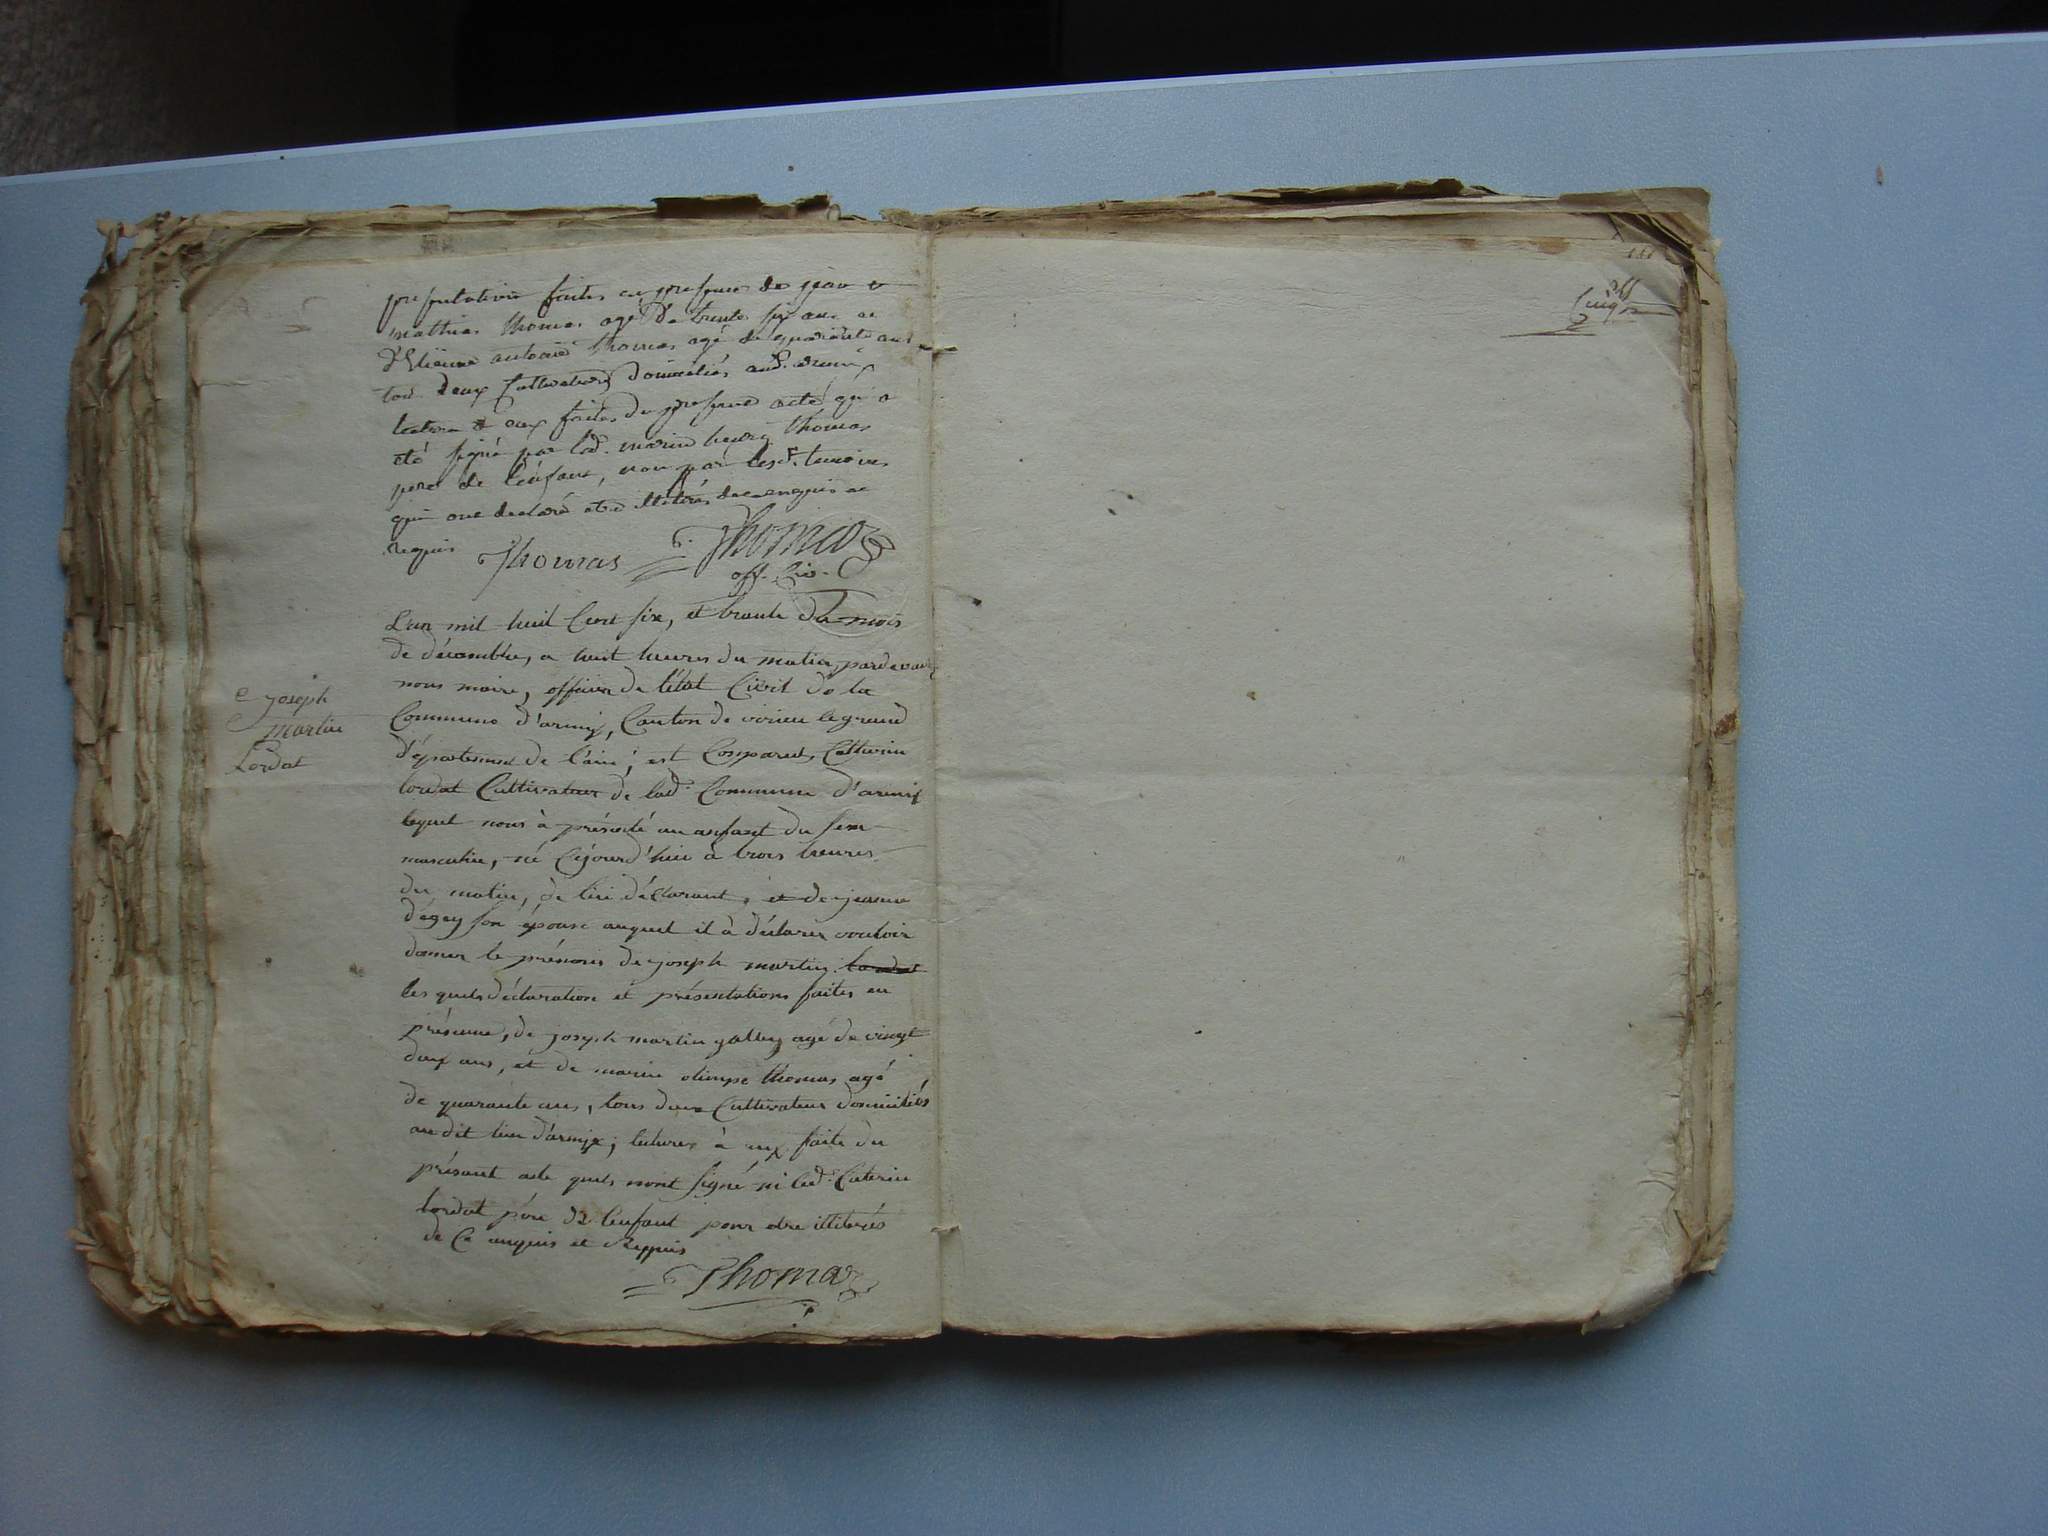 presentations faites en presence de jean
mathieu thomas agé de trente six ans et
d'Etienne antoine thomas agé de quarante ans
tous deux Cultivateurs domiciliés aud. armix
lecture a eux faites du present acte qui a
été signé par led. marin henry thomas
pere de l'enfant, non par lesd. temoins
qui ont declaré etre illiterés de ce enquis et
requis Thomas Thomas
off. Civ.
L'an mil huit Cent six, et trente du mois
de décembre, a huit heures du matin, pardevant
nous maire, officier de l'état Civil de la
Commune d'armix, Canton de virieu le grand
département de l'ain; est Comparut, Catherin
lordat Cultivateur de lad. Commune d'armix
lequel nous à présenté un anfant du sexe
masculin, né Cejourd'hui à trois heures
du matin, de lui déclarant, et de jeanne
dégey son épouse auquel il à déclarer vouloir
donner le prénoms de joseph martin lordat
les quels déclaration et présentations faites en
présence, de joseph martin gallay agé de vingt
deux ans, et de marin olimpe thomas agé
de quarante ans, tous deux Cultivateur domiciliés
au dit lieu d'armix; lectures à eux faite du
présant acte quils n'ont signé ni led. Caterin
lordat père de l'enfant pour etre illiterés
de Ce anquis et Requis
Thomas
joseph
martin
Lordat